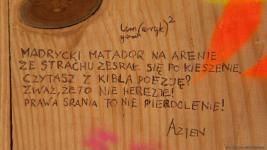 Lim(eryk)²
MADRYCKI MATADOR NA ARENIE
ZE STRACHU ZESRAŁ SIĘ PO KIESZENIE.
CZYTASZ Z KIBLA POEZJĘ?
ZWAŻ, ŻE TO NIE HEREZJE!
PRAWA SRANIA TO NIE PIERDOLENIE!
AZIEN